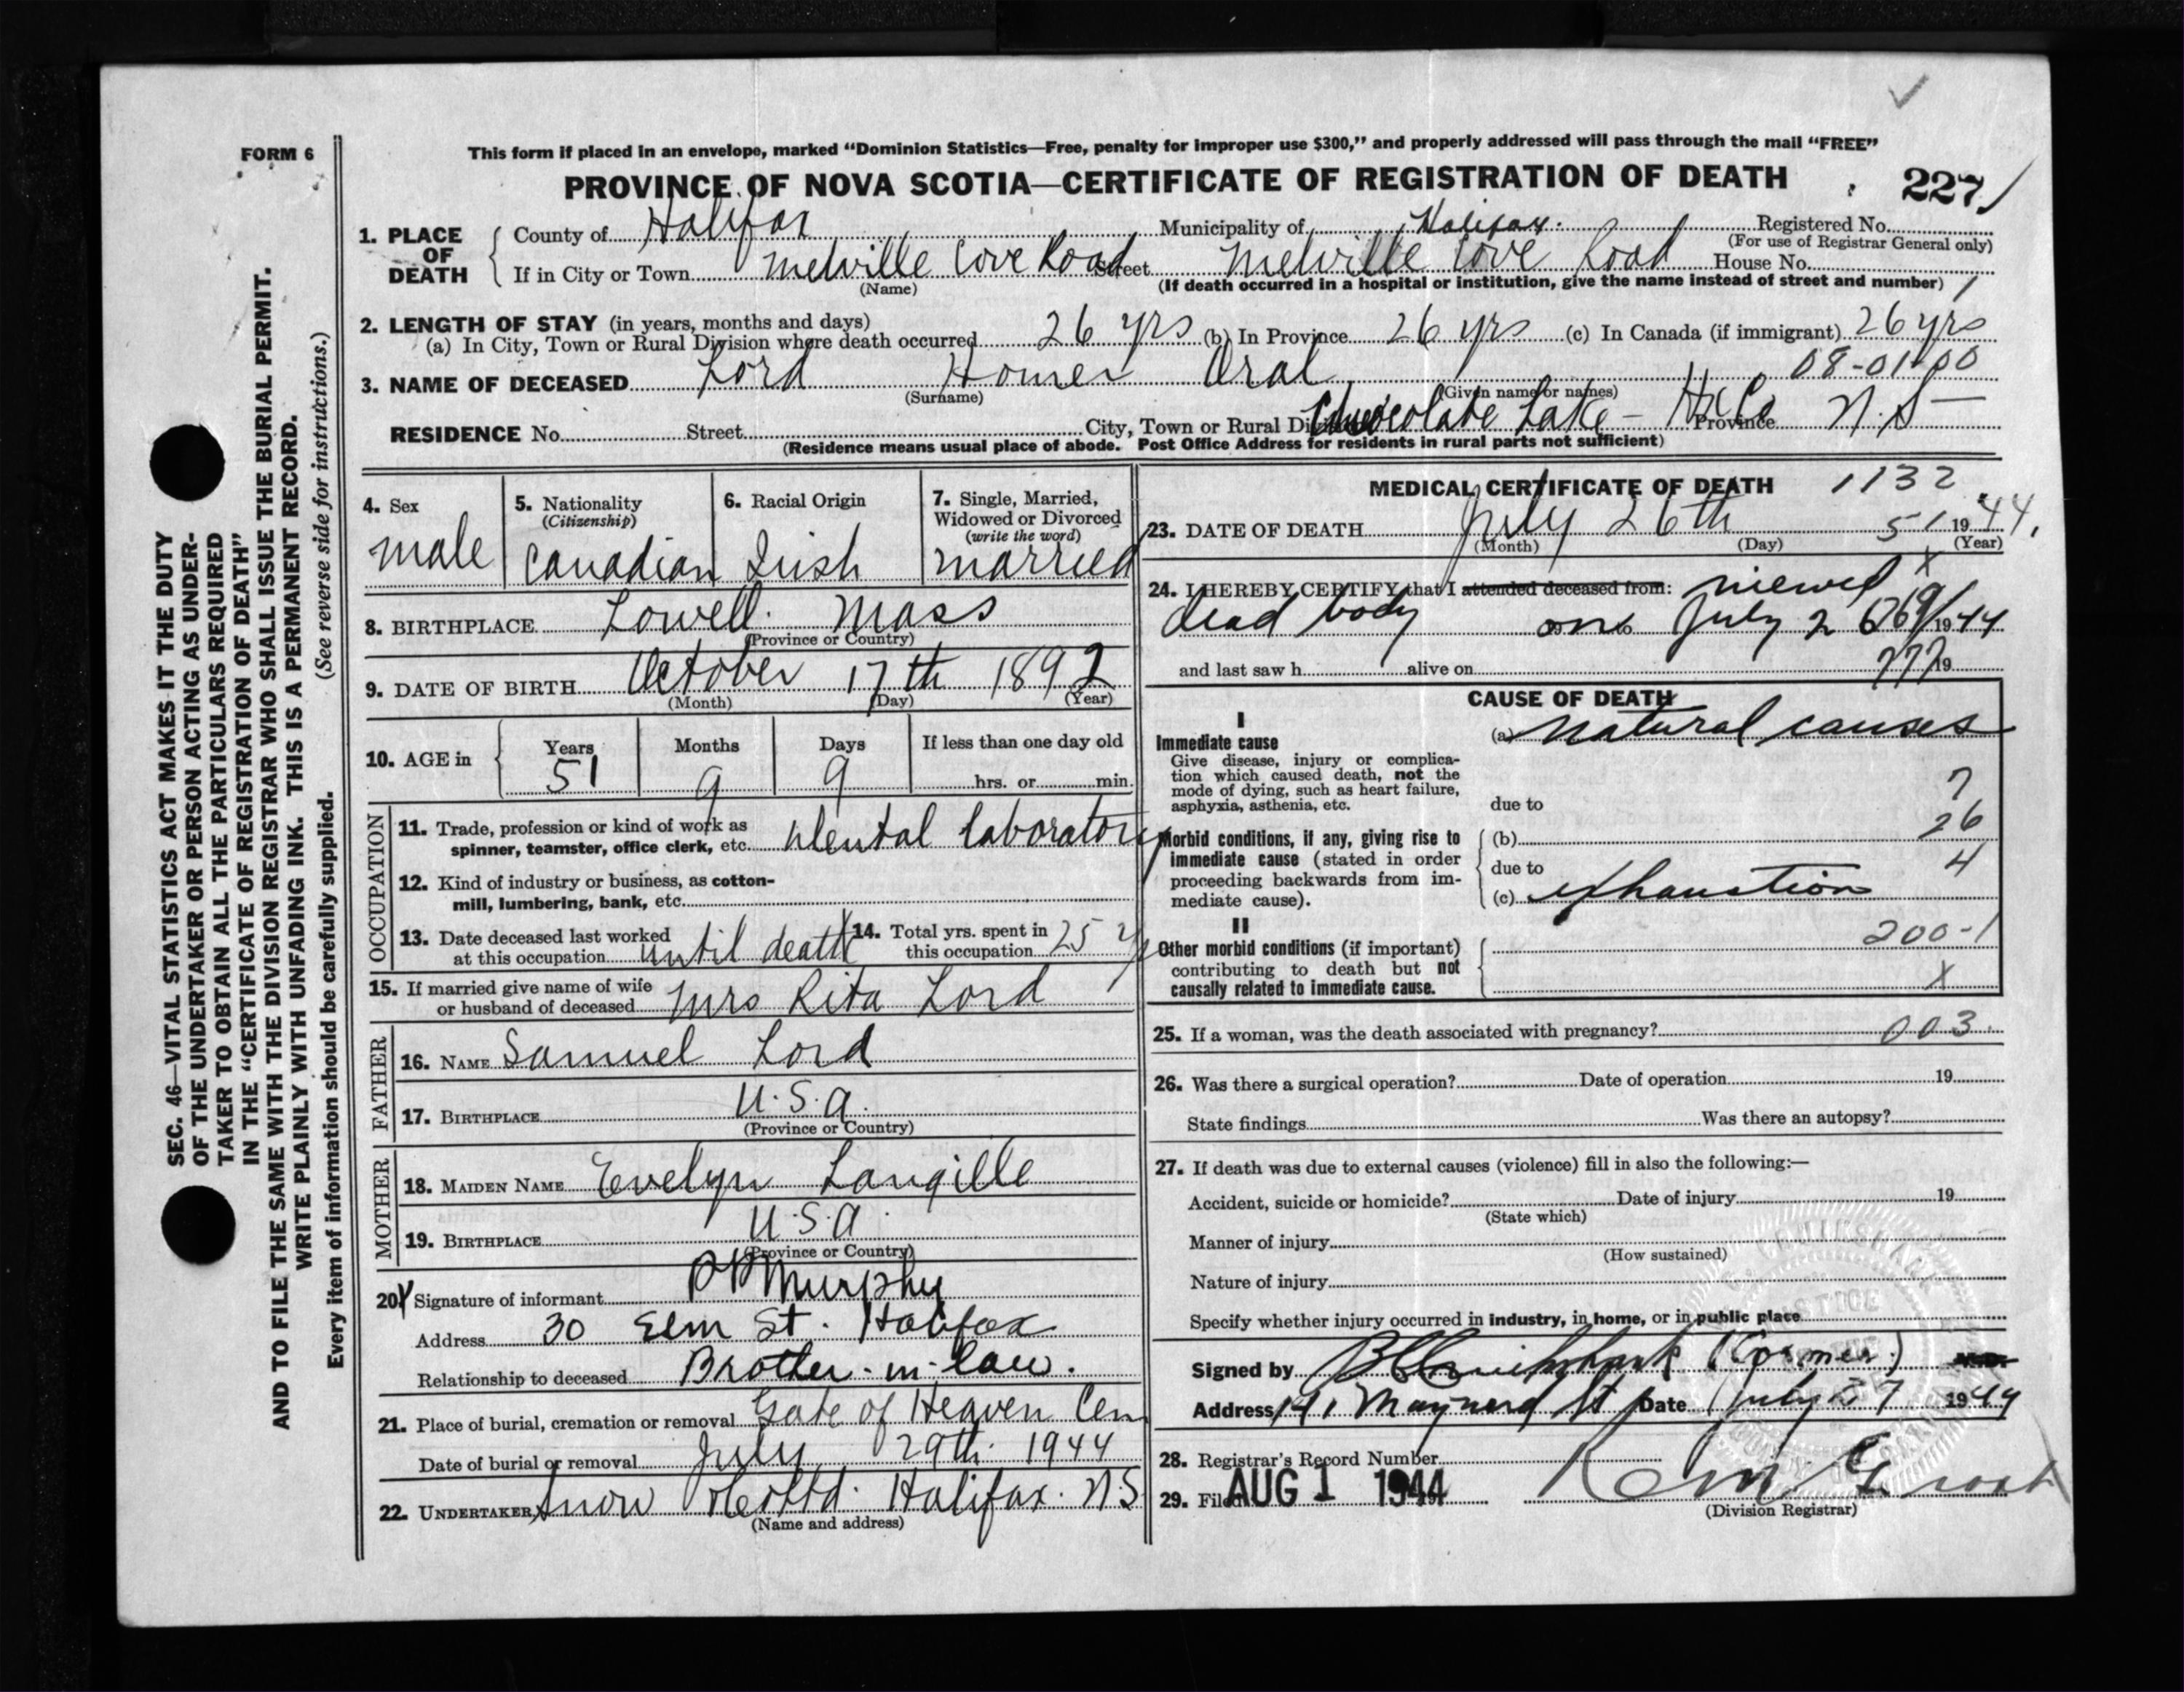 FORM 6
This form if placed in an envelope, marked “Dominion Statistics—Free, penalty for improper use $300,” and properly addressed will pass through the mail “FREE”
PROVINCE OF NOVA SCOTIA—CERTIFICATE OF REGISTRATION OF DEATH 227
SEC. 46—VITAL STATISTICS ACT MAKES IT THE DUTY
OF THE UNDERTAKER OR PERSON ACTING AS UNDER-
TAKER TO OBTAIN ALL THE PARTICULARS REQUIRED
IN THE “CERTIFICATE OF REGISTRATION OF DEATH”
AND TO FILE THE SAME WITH THE DIVISION REGISTRAR WHO SHALL ISSUE THE BURIAL PERMIT.
WRITE PLAINLY WITH UNFADING INK. THIS IS A PERMANENT RECORD.
(See reverse side for instructions.)
Every item of information should be carefully supplied.
1. PLACE OF DEATH
County of Halifax Municipality of Halifax. Registered No.
(For use of Registrar General only)
If in City or Town Melville Cove Road Street Melville Cove Road House No.
(Name) (If death occurred in a hospital or institution, give the name instead of street and number) 1
2. LENGTH OF STAY (in years, months and days)
(a) In City, Town or Rural Division where death occurred 26 yrs (b) In Province 26 yrs (c) In Canada (if immigrant) 26 yrs
08-01-00
3. NAME OF DECEASED Lord Homer Oral
(Surname) (Given name or names)
RESIDENCE No. Street City, Town or Rural Div Chocolate Lake - Hx Co Province N.S
(Residence means usual place of abode. Post Office Address for residents in rural parts not sufficient)
4. Sex
male
5. Nationality
(Citizenship)
Canadian
6. Racial Origin
Irish
7. Single, Married,
Widowed or Divorced
(write the word)
married
8. BIRTHPLACE Lowell. Mass
(Province or Country)
9. DATE OF BIRTH October 17th 1892
(Month) (Day) (Year)
10. AGE in
Years Months Days If less than one day old
51 9 9 hrs. or min.
OCCUPATION
11. Trade, profession or kind of work as
spinner, teamster, office clerk, etc. Dental laboratory
12. Kind of industry or business, as cotton-
mill, lumbering, bank, etc.
13. Date deceased last worked
at this occupation until death
14. Total yrs. spent in
this occupation 25 y
15. If married give name of wife
or husband of deceased Mrs Rita Lord
FATHER
16. NAME Samuel Lord
17. BIRTHPLACE U.S.A.
(Province or Country)
MOTHER
18. MAIDEN NAME Evelyn Langille
19. BIRTHPLACE U.S.A.
(Province or Country)
20. Signature of informant Murphy
Address 30 Elm St. Halifax
Relationship to deceased Brother-in-law.
21. Place of burial, cremation or removal Gate of Heaven Cem
Date of burial or removal July 29th 1944
22. UNDERTAKER Snow & Co Ltd. Halifax. N.S
(Name and address)
MEDICAL CERTIFICATE OF DEATH 1132
23. DATE OF DEATH July 26th 51 1944.
(Month) (Day) (Year)
24. I HEREBY CERTIFY that I attended deceased from: viewed X
dead body on July 26 69/1944
and last saw h alive on 777 19
CAUSE OF DEATH
I
Immediate cause
Give disease, injury or complica-
tion which caused death, not the
mode of dying, such as heart failure,
asphyxia, asthenia, etc.
(a) natural causes
due to 7
Morbid conditions, if any, giving rise to
immediate cause (stated in order
proceeding backwards from im-
mediate cause).
(b) 26
due to 4
(c) exhaustion
II
Other morbid conditions (if important)
contributing to death but not
causally related to immediate cause.
200-1
X
25. If a woman, was the death associated with pregnancy? 003.
26. Was there a surgical operation? Date of operation 19
State findings Was there an autopsy?
27. If death was due to external causes (violence) fill in also the following:—
Accident, suicide or homicide? Date of injury 19
(State which)
Manner of injury
(How sustained)
Nature of injury
Specify whether injury occurred in industry, in home, or in public place
Signed by Cruikshank (Coroner) M.D.
Address 191 Maynard St Date July 27 1944
28. Registrar's Record Number
29. Filed AUG 1 1944
(Division Registrar)